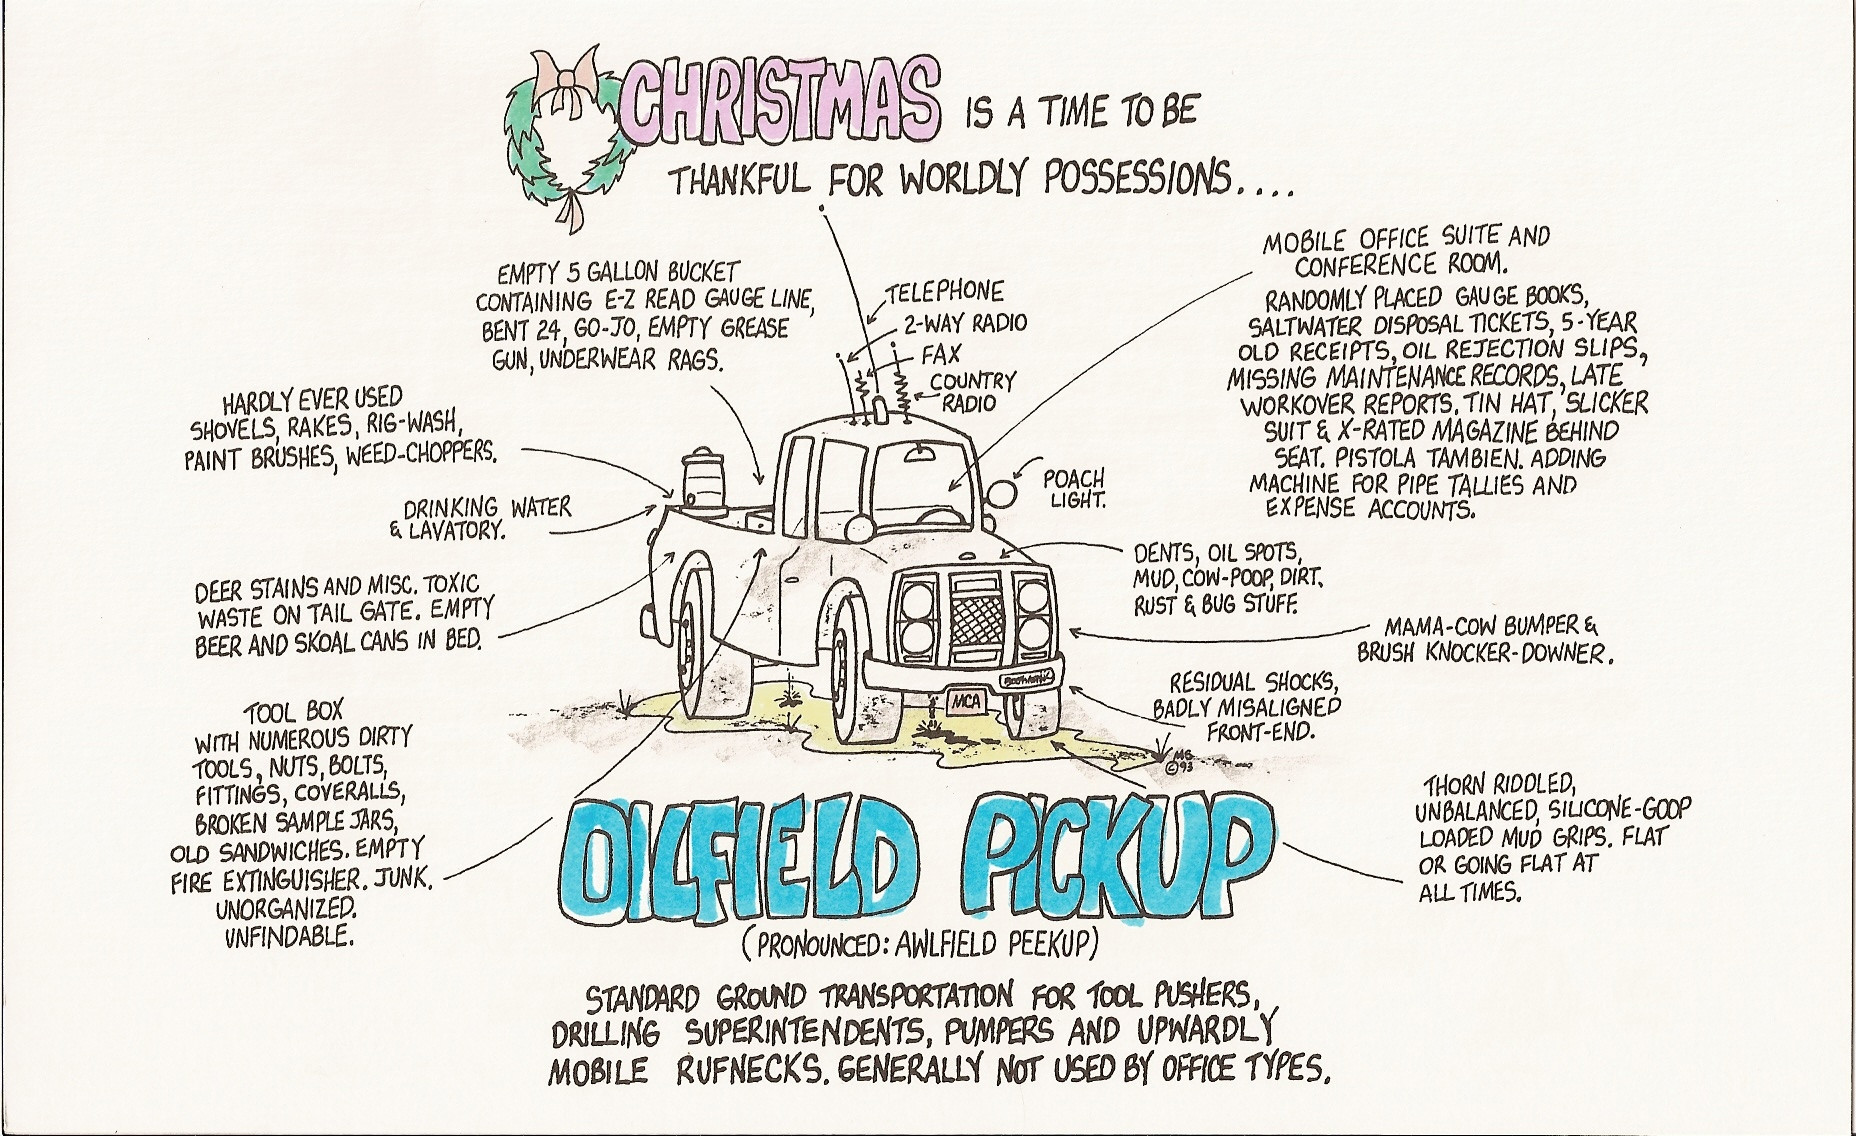 CHRISTMAS IS A TIME TO BE
THANKFUL FOR WORLDLY POSSESSIONS....
EMPTY 5 GALLON BUCKET
CONTAINING E-Z READ GAUGE LINE,
BENT 24, GO-JO, EMPTY GREASE
GUN, UNDERWEAR RAGS.
TELEPHONE
2-WAY RADIO
FAX
COUNTRY
RADIO
MOBILE OFFICE SUITE AND
CONFERENCE ROOM.
RANDOMLY PLACED GAUGE BOOKS,
SALTWATER DISPOSAL TICKETS, 5-YEAR
OLD RECEIPTS, OIL REJECTION SLIPS,
MISSING MAINTENANCE RECORDS, LATE
WORKOVER REPORTS. TIN HAT, SLICKER
SUIT & X-RATED MAGAZINE BEHIND
SEAT. PISTOLA TAMBIEN. ADDING
MACHINE FOR PIPE TALLIES AND
EXPENSE ACCOUNTS.
HARDLY EVER USED
SHOVELS, RAKES, RIG-WASH,
PAINT BRUSHES, WEED-CHOPPERS.
POACH
LIGHT.
DRINKING WATER
& LAVATORY.
DENTS, OIL SPOTS,
MUD, COW-POOP, DIRT,
RUST & BUG STUFF.
DEER STAINS AND MISC. TOXIC
WASTE ON TAIL GATE. EMPTY
BEER AND SKOAL CANS IN BED.
MAMA-COW BUMPER &
BRUSH KNOCKER-DOWNER.
RESIDUAL SHOCKS,
BADLY MISALIGNED
FRONT-END.
MCA
MG
©93
TOOL BOX
WITH NUMEROUS DIRTY
TOOLS, NUTS, BOLTS,
FITTINGS, COVERALLS,
BROKEN SAMPLE JARS,
OLD SANDWICHES. EMPTY
FIRE EXTINGUISHER. JUNK.
UNORGANIZED.
UNFINDABLE.
THORN RIDDLED,
UNBALANCED, SILICONE-GOOP
LOADED MUD GRIPS. FLAT
OR GOING FLAT AT
ALL TIMES.
OILFIELD PICKUP
(PRONOUNCED: AWLFIELD PEEKUP)
STANDARD GROUND TRANSPORTATION FOR TOOL PUSHERS,
DRILLING SUPERINTENDENTS, PUMPERS AND UPWARDLY
MOBILE RUFNECKS. GENERALLY NOT USED BY OFFICE TYPES.